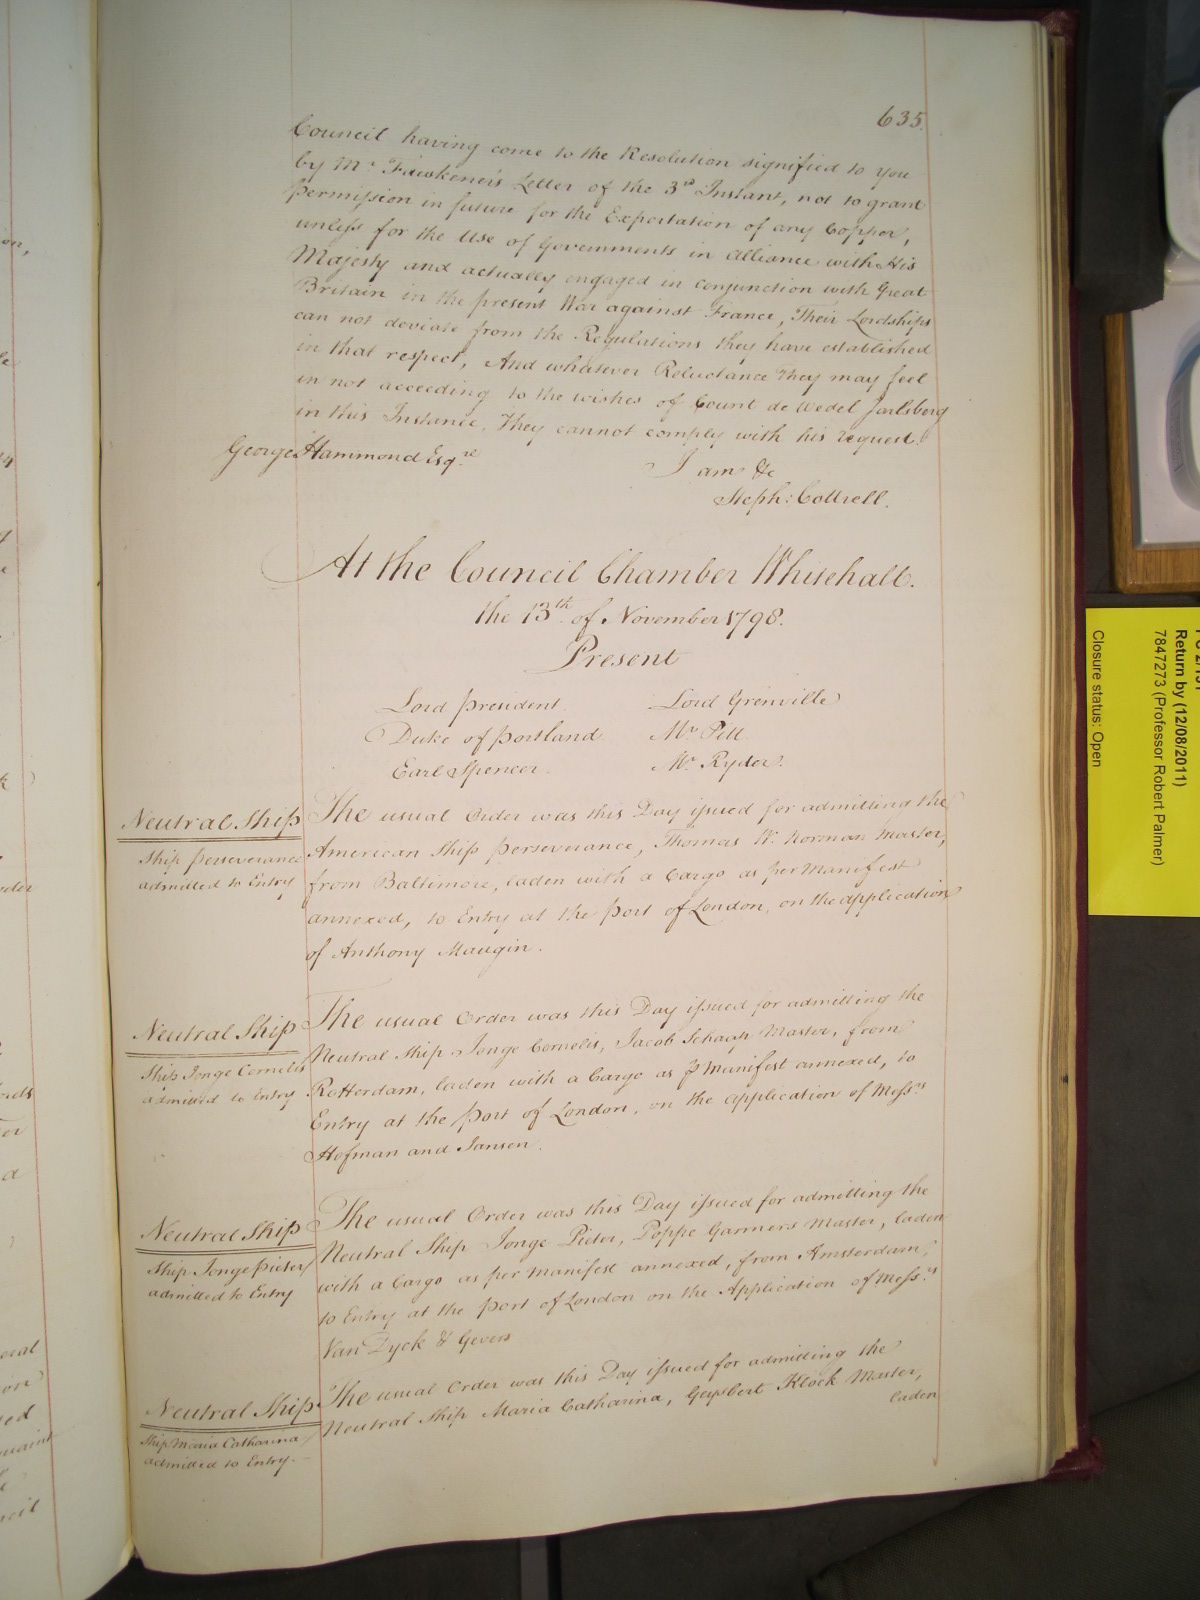 635.
Council having come to the Resolution signified to you
by Mr. Fawkener's Letter of the 3d Instant, not to grant
permission in future for the Exportation of any Copper,
unless for the Use of Governments in alliance with His
Majesty and actually engaged in conjunction with Great
Britain in the present War against France, Their Lordships
can not deviate from the Regulations they have established
in that respect, And whatever Reluctance They may feel
in not acceeding to the wishes of Count de Wedel Jarlsberg
in this Instance, They cannot comply with his request.
I am &c
George Hammond Esqre
Steph: Cottrell.
At the Council Chamber Whitehall.
the 13th of November 1798.
Present
Lord President. Lord Grenville
Duke of Portland Mr Pitt
Earl Spencer. Mr Ryder.
Neutral Ship
Ship Perseverance
admitted to Entry
The usual Order was this Day issued for admitting the
American Ship Perseverance, Thomas W. Norman Master,
from Baltimore, laden with a Cargo as per Manifest
annexed, to Entry at the Port of London, on the application
of Anthony Maugin.
Neutral Ship
Ship Jonge Cornelis
admitted to Entry
The usual Order was this Day issued for admitting the
Neutral Ship Jonge Cornelis, Jacob Schagh Master, from
Rotterdam, laden with a Cargo as p Manifest annexed, to
Entry at the Port of London, on the application of Messrs
Hofman and Jansen.
Neutral Ship
Ship Jonge Pieter
admitted to Entry
The usual Order was this Day issued for admitting the
Neutral Ship Jonge Pieter, Poppe Garmers Master, laden
with a Cargo as per Manifest annexed, from Amsterdam,
to Entry at the port of London on the Application of Messrs
Van Dyck & Gevers
Neutral Ship
Ship Maria Catharina
admitted to Entry.
The usual Order was this Day issued for admitting the
Neutral Ship Maria Catharina, Geysbert Klock Master,
laden
Return by (12/08/2011)
7847273 (Professor Robert Palmer)
Closure status: Open